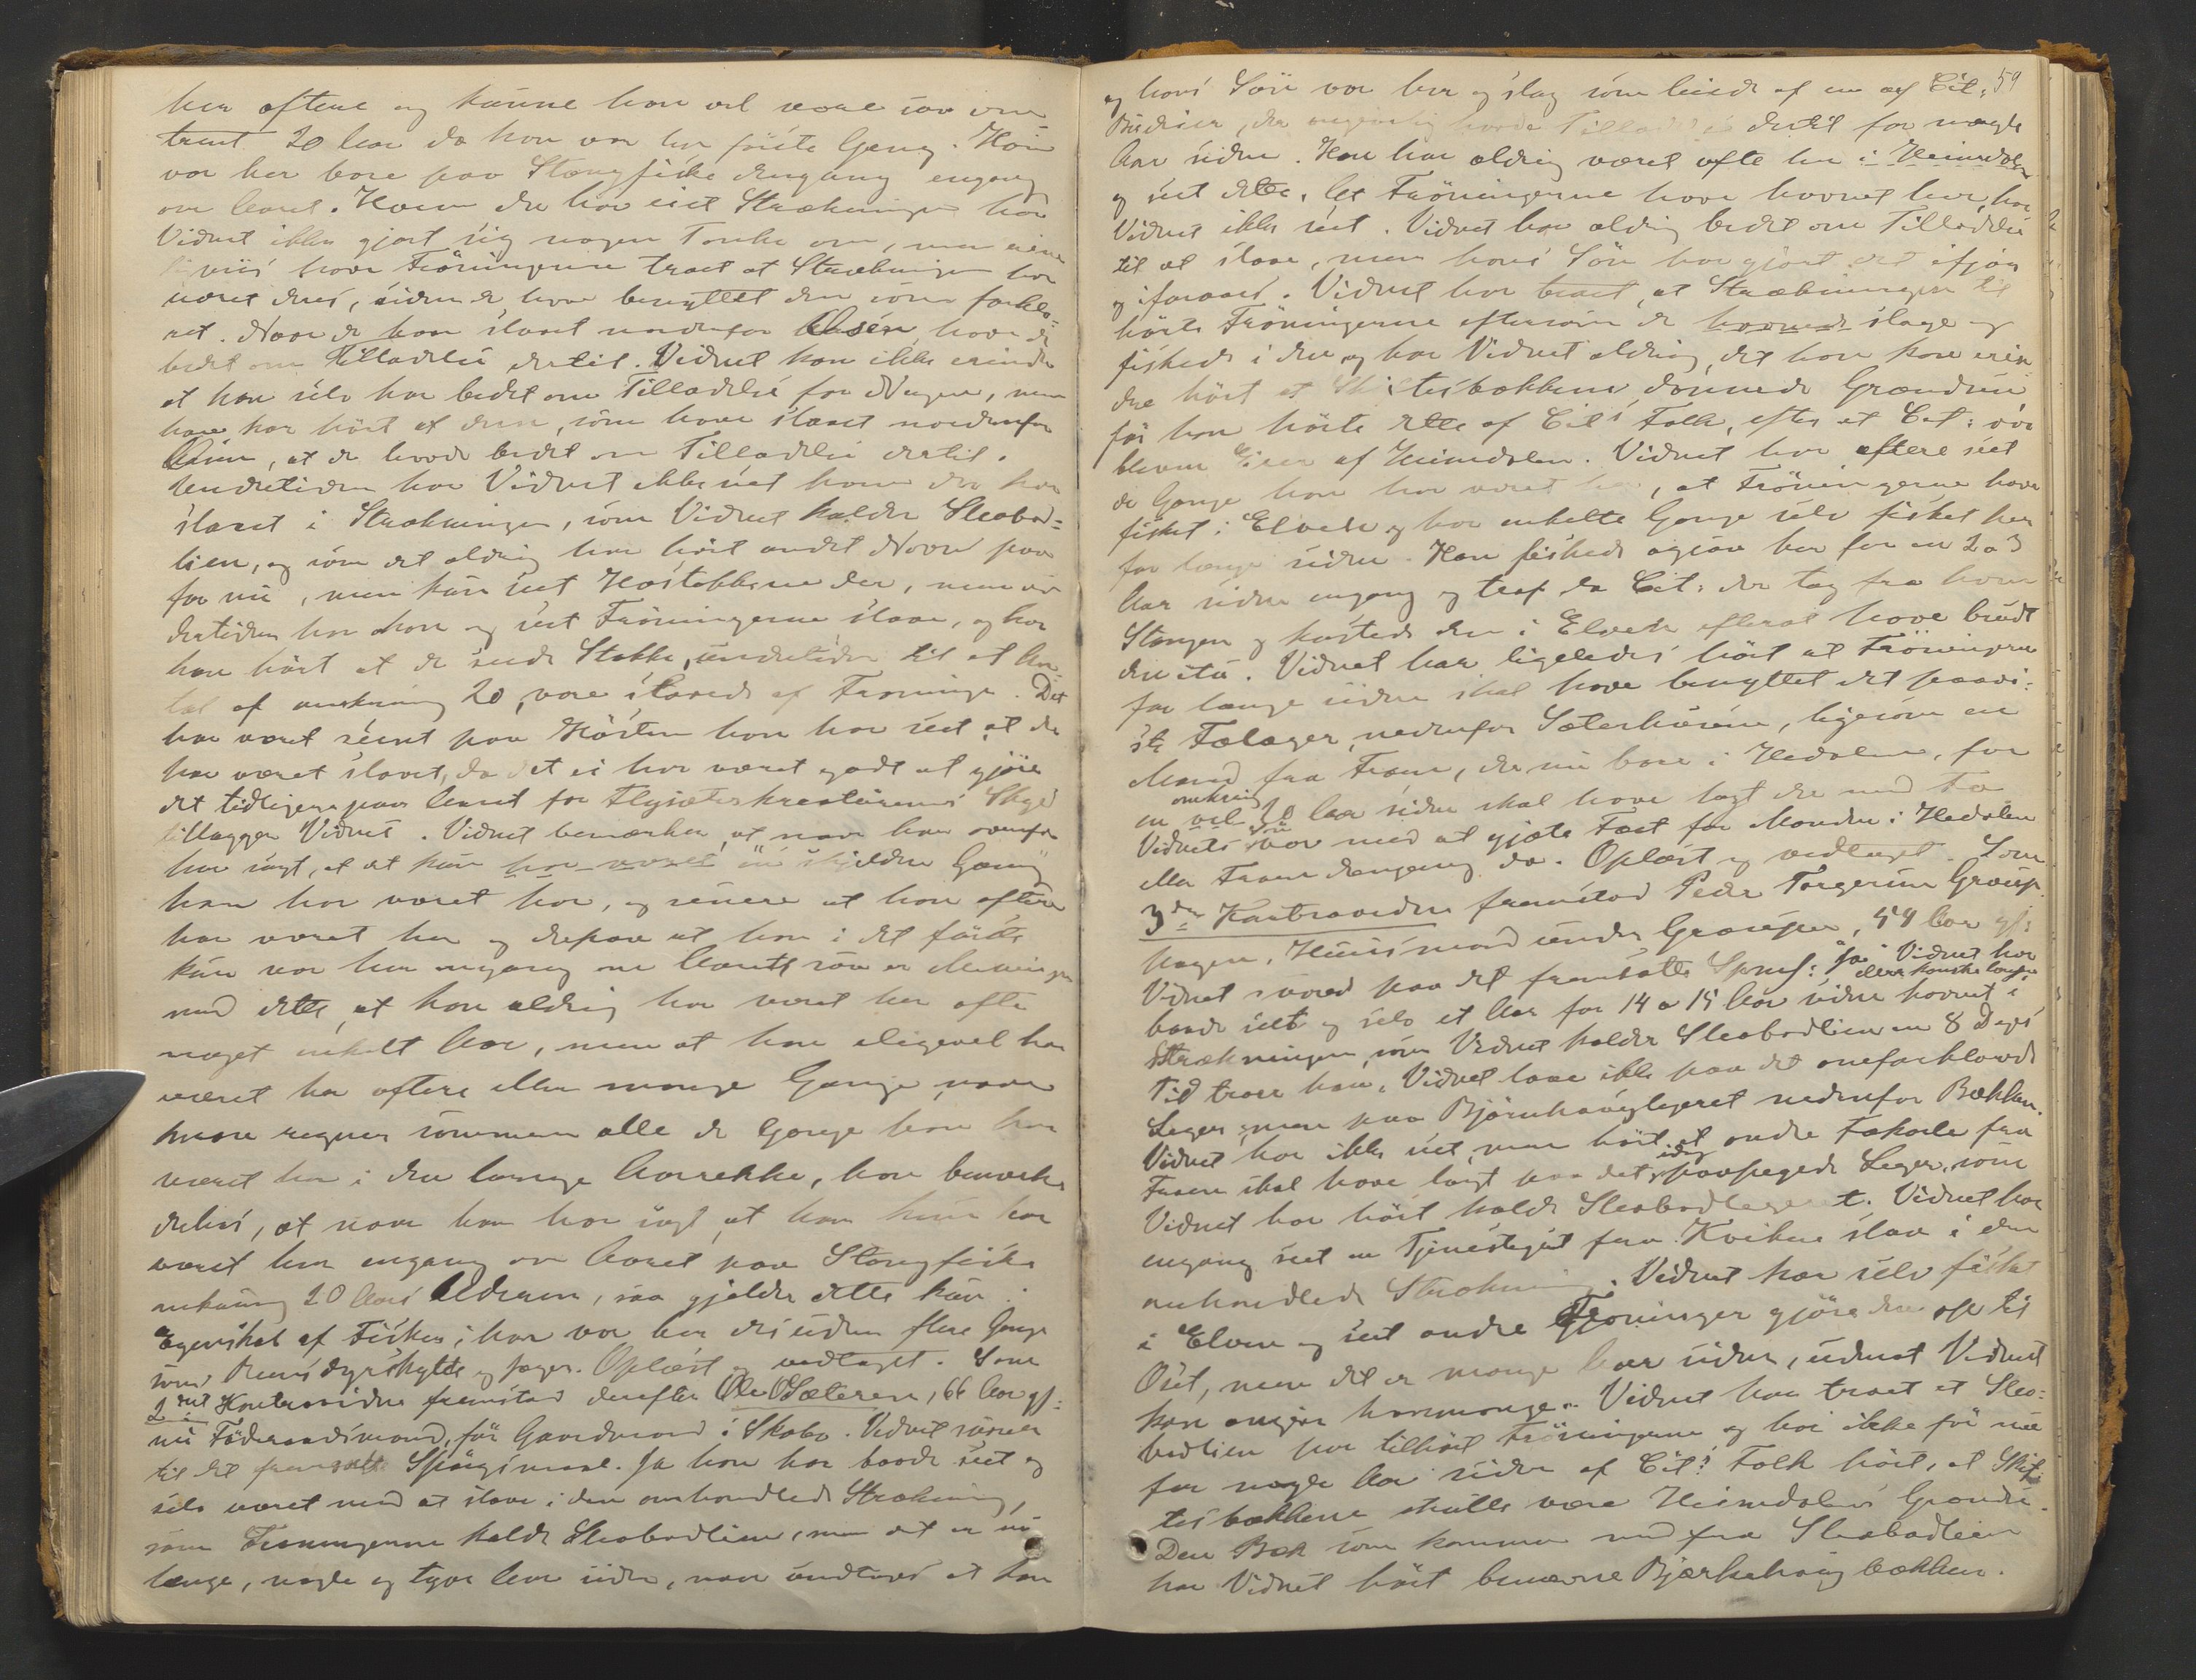 her oftere og kunne han vel være saa om-
trent 20 Aar da han var her første Gang. Han
var her bare paa Stangfiske dengang engang
om Aaret. Hvem der har eiet Strækningen har
Vidnet ikke gjort sig nogen Tanke om, men
viis have Fröningerne troet at Strækningen har
været deres, siden de have benyttet den som forkla-
ret. Naar de have slaaet nordenfor Aasen have de
bedt om Tilladelse dertil. Vidnet kan ikke erindre
at han selv har bedt om Tilladelse fra Nogen, men
han har hört af dem, som have slaaet nordenfor
Aasen, at de havde bedt om Tilladelse dertil.
Undertiden har Vidnet ikke seet hvem der har
slaaet i Strækningen, som Vidnet kalder Sleabod-
lien, og som det aldrig har hört andet Navn paa
før nu, men kun seet Høstakkene der, men un-
dertiden har han og seet Fröningerne slaae, og har
han hört at de seede Stakke, undertiden til et An-
tal af omkring 20, vare slaaede af Froninge. Det
har været seent paa Hösten han har seet at der
har været slaaet, da det ei har været godt at gjöre
det tidligere paa Aaret for Flysæterkreaturenes Skyld
tillægger Vidnet. Vidnet bemærker, at naar han ovenfor
har sagt, at det kun har været en skjelden Gang
han har været her, og senere at han oftere
har været her og derpaa at han i det første
kun var her engang om Aaret saa er Meningen
med dette, at han aldrig har været her ofte
noget enkelt Aar, men at han alligevel har
været her oftere eller mange Gange, naar
man regner sammen alle de Gange han har
været her i den lange Aarrekke, han bemærker
derhos, at naar han har sagt, at han kun har
været her engang om Aaret paa Stangfiske
omkring 20 Aars Alderen, saa gjelder dette kun i
Egenskab af Fisker; han var her desuden flere Gange
som Reensdyrskytte og Jæger. Oplæst og vedtaget. Som
2det Kontravidne fremstod derefter Ole O Sæteren, 66 Aar gl:
nu Föderaadsmand, för Gaardmand i Skabo. Vidnet svarer
til det fremsatte Spörgsmaal. Ja han har baade seet og
selv været med at slaae i den omhandlede Strækning,
som Froningerne kalde Sleabodlien, men det er nu
længe, nogle og tyve Aar siden, naar undtages at han
59
og hans Sön var her og slog som leiede af en af Cit:
Brödrer, der angivelig havde Tilladelse dertil for nogle
Aar siden. Han har aldrig været ofte her i Heimdalen
og seet dette. At Fröningerne have havnet her, har
Vidnet ikke seet. Vidnet har aldrig bedt om Tilladelse
til at slaae, men hans Sön har gjort det ifjor
og iforaars. Vidnet har troet, at Strækningen til-
hörte Fröningerne eftersom de havnede sloge og
fiskede i den og har Vidnet aldrig, det han kan erin-
dre hört at Skiftesbækkene dannede Grændsen
för han hörte dette af Cit's Folk, efter at Cit: var
bleven Eier af Heimdalen. Vidnet har oftere seet
de Gange han har været her, at Fröningerne have
fisket i Elven og har enkelte Gange selv fisket her
for længe siden. Han fiskede ogsaa her for en 2 a 3
Aar siden engang og traf da Cit: der tog fra ham
Stangen og kastede den i Elven efterat have brudt
den itu. Vidnet har ligeledes hört at Fröningerne
for længe siden skal have benyttet det paavi-
ste Fælæger, nedenfor Sæterhusene, ligesom en
Mand fra Fron, der nu boer i Hedalen, for
en vel omkring 10 Aar siden skal have lagt der med Fæ
Vidnets Sön var med at gjæte Fæet for Manden i Hedalen
eller Fron dengang da. Oplæst og vedtaget. Som
3die Kontravidne fremstod Peder Torgersen Graup-
hagen, Huusmand under Graupe, 54 Aar gl:
Vidnet svared paa det fremsatte Spm: "Ja" Vidnet har
baade seet og selv et Aar for 14 a 15 Aar eller kanske længe siden havnet i
Strækningen som Vidnet kalder Sleabodlien en 8 Dages
Tid troer han. Vidnet laae ikke paa det omforklarede
Leger, men paa Bjørnhauglegeret nedenfor Bækken.
Vidnet har ikke seet, men hört at andre Fækarle fra
Fron skal have lagt paa det idag paapegede Leger, som
Vidnet har hört kalde Sleabodlegeret. Vidnet har
engang seet en Tjenestegut fra Kvikne slaae i den
omhandlede Strækning. Vidnet har selv fisket
i Elven og seet andre Froninger gjöre det op til
Oset, men det er mange Aar siden, uden at Vidnet
kan angive hvormange. Vidnet har troet at Slea-
bodlien har tilhört Fröningerne og har ikke för nu
for nogle Aar siden af Cit's Folk hört, at Skif-
tesbækkene skulle være Heimdalens Grændse.
Den Bæk som kommer ned fra Sleabodlien
har Vidnet hört benævne Bjærkehaugbækken.